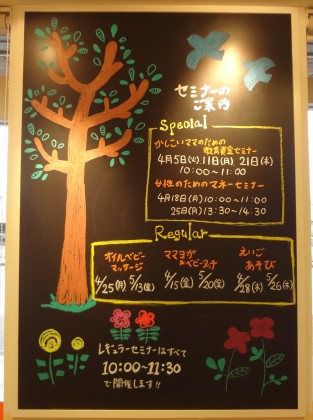 セミナーの
ご案内
Special
かしこいママのための
教育資金セミナー
4月5日(火) 11日(月) 21日(木)
10:00〜11:00
女性のためのマネーセミナー
4月18日(月) 10:00〜11:00
25日(月) 13:30〜14:30
Regular
オイルベビー
マッサージ
4/25(月) 5/13(金)
ママヨガ
&ベビータッチ
4/15(金) 5/20(金)
えいご
あそび
4/28(木) 5/26(木)
レギュラーセミナーはすべて
10:00〜11:30
で開催します!!